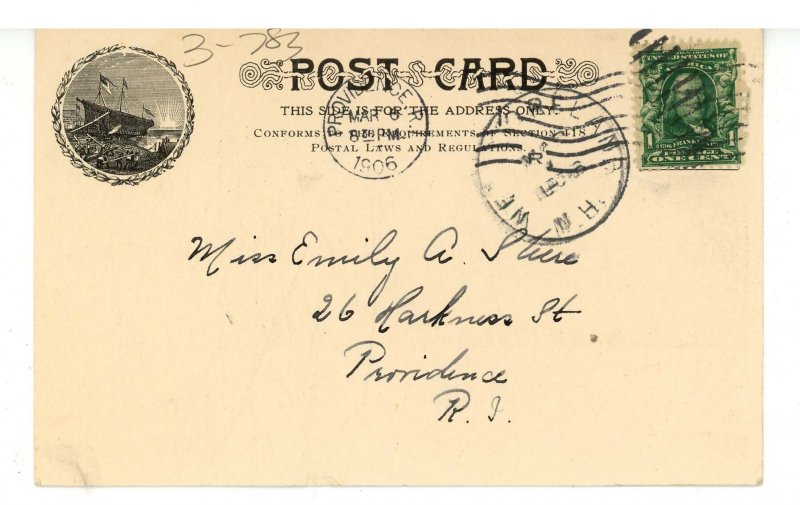 3-783
POST CARD
THIS SIDE IS FOR THE ADDRESS ONLY.
CONFORMS TO THE REQUIREMENTS OF SECTION 418
POSTAL LAWS AND REGULATIONS.
PROVIDENCE R
MAR 6
8 30 PM
1906
UNITED STATES OF
1 1
FRANKLIN
POSTAGE
ONE CENT
Miss Emily A.
26 Harkness St
Providence
R.I.